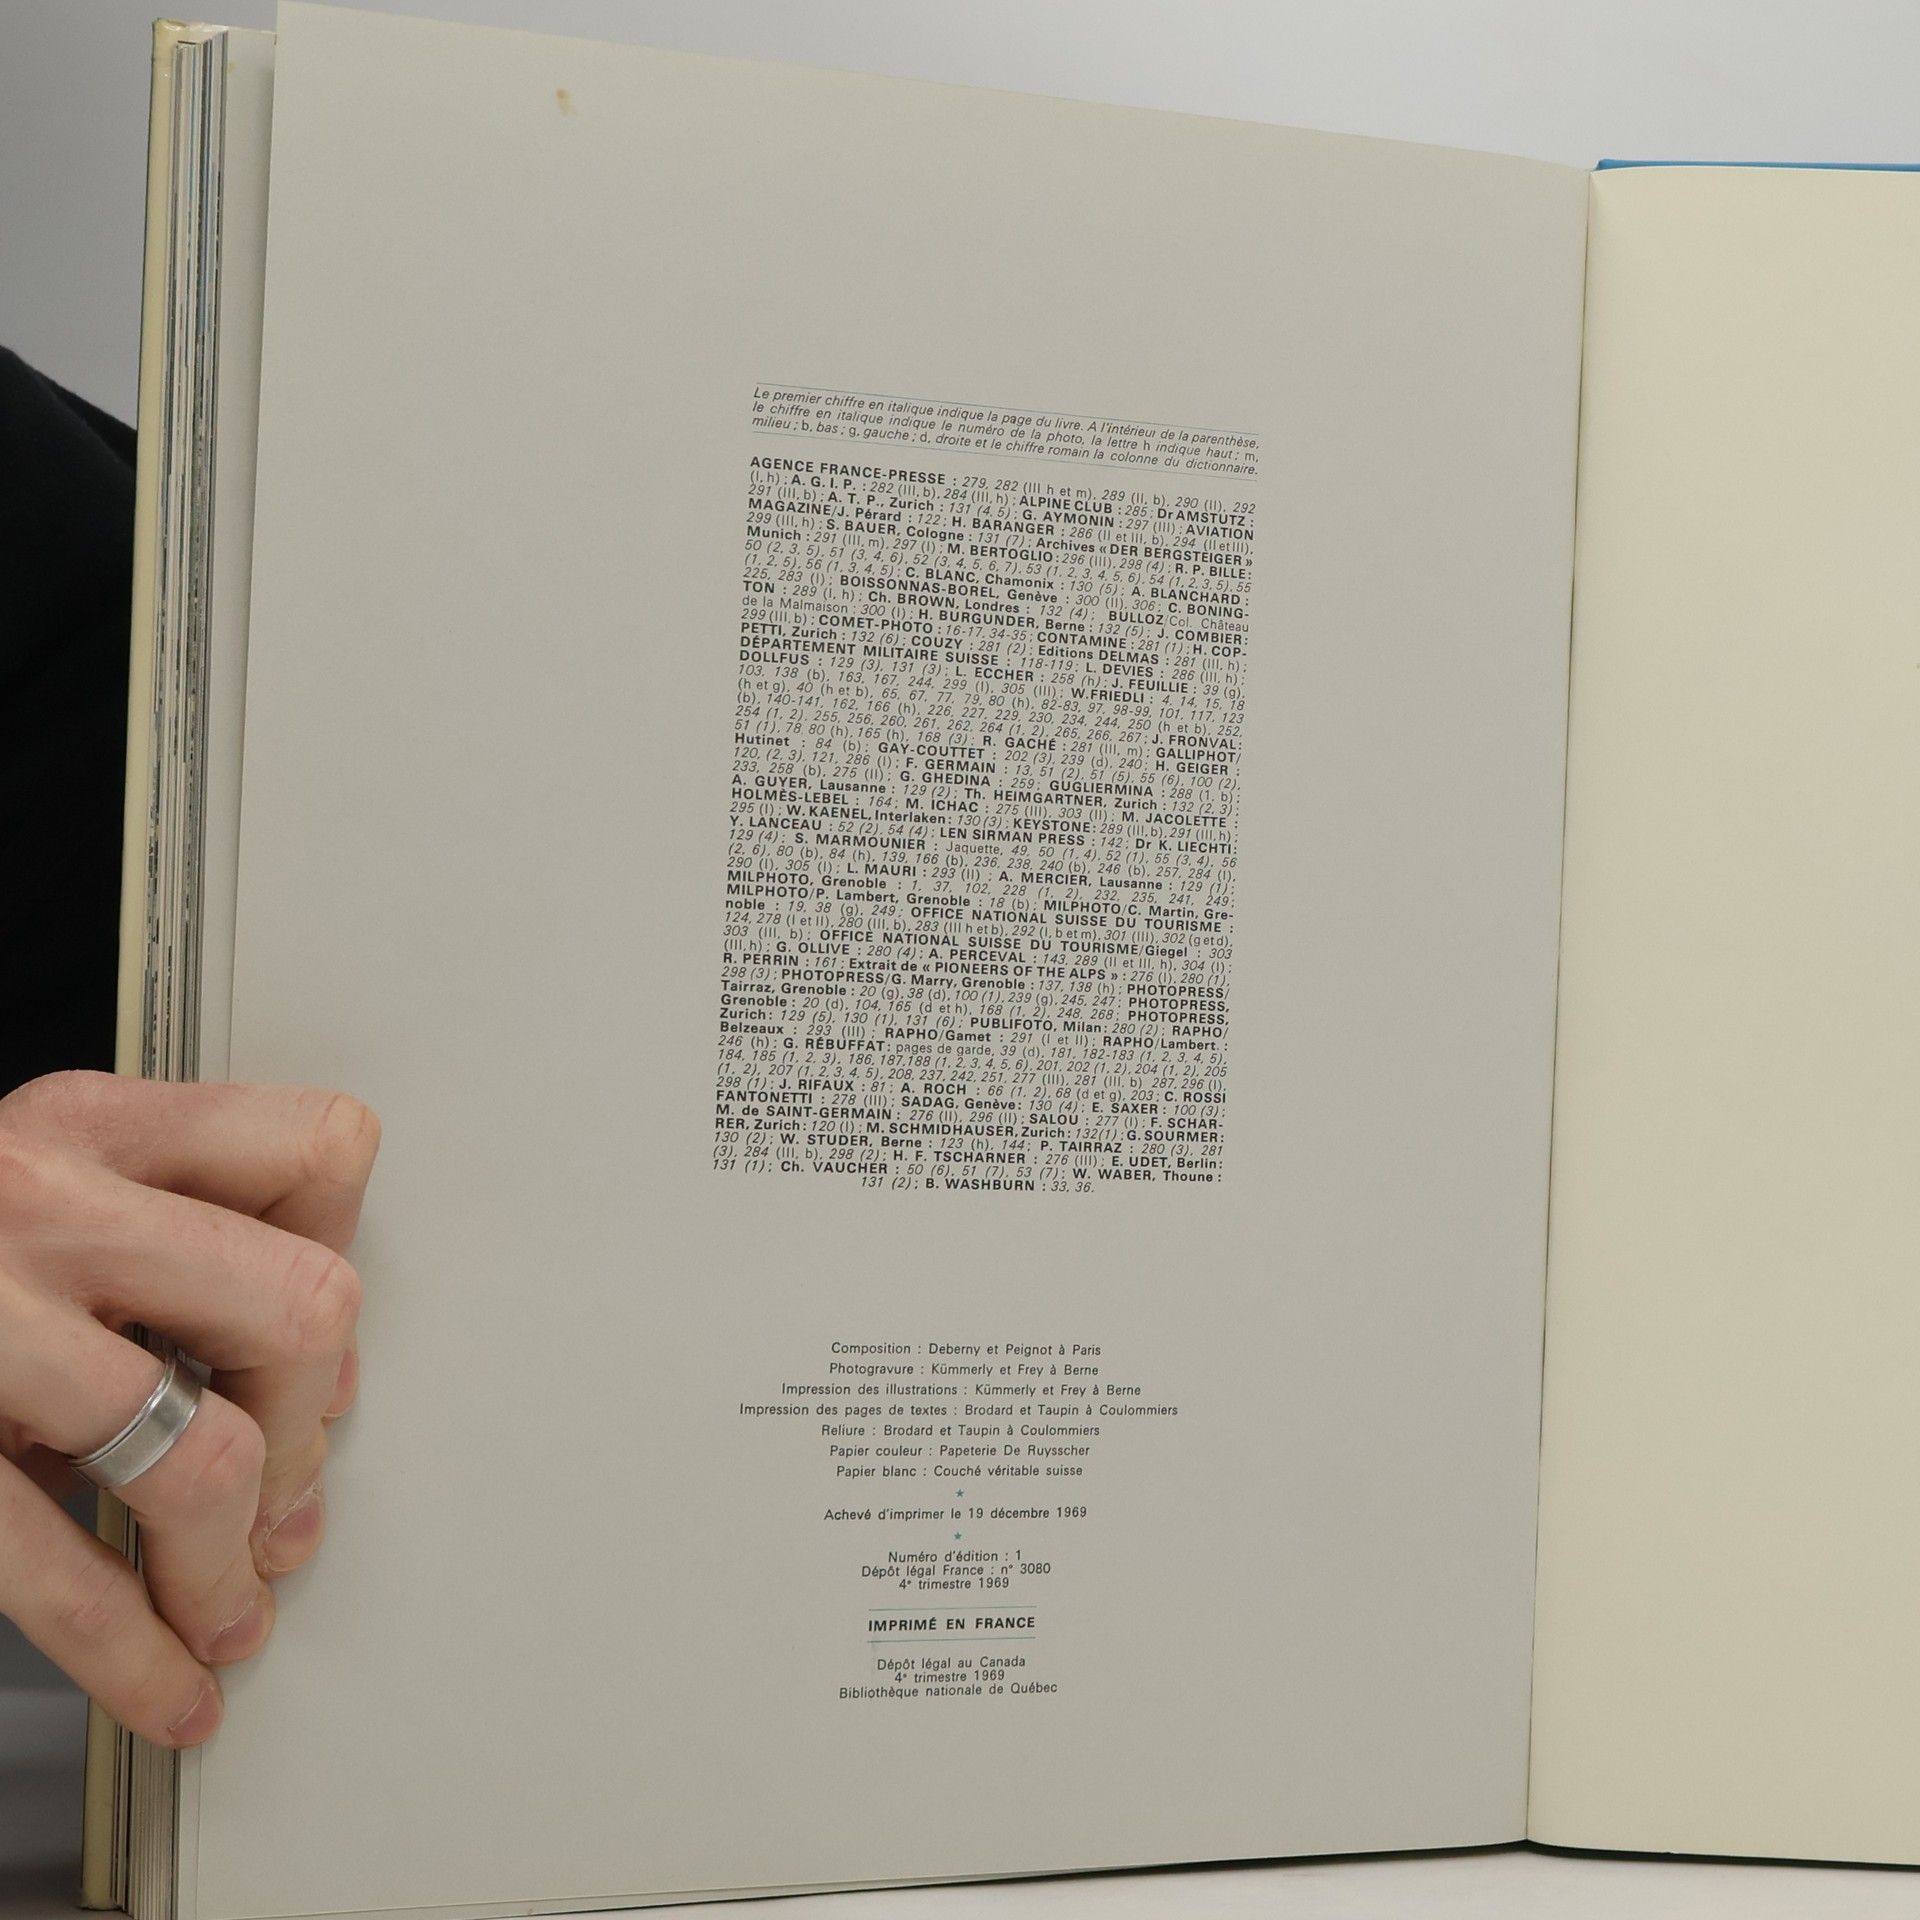 Le premier chiffre en italique indique la page du livre. A l'intérieur de la parenthèse,
le chiffre en italique indique le numéro de la photo, la lettre h indique haut ; m,
milieu ; b, bas ; g, gauche ; d, droite et le chiffre romain la colonne du dictionnaire.
AGENCE FRANCE-PRESSE : 279, 282 (III h et m), 289 (II, b), 290 (II), 292
(I, h) ; A. G. I. P. : 282 (III, b), 284 (III, h) ; ALPINE CLUB : 285 ; Dr AMSTUTZ :
291 (III, b) ; A. T. P., Zurich : 131 (4, 5) ; G. AYMONIN : 297 (III) ; AVIATION
MAGAZINE/J. Pérard : 122 ; H. BARANGER : 286 (II et III, b), 294 (II et III),
299 (III, h) ; S. BAUER, Cologne : 131 (7) ; Archives « DER BERGSTEIGER »
Munich : 291 (III, m), 297 (I) ; M. BERTOGLIO : 296 (III), 298 (4) ; R. P. BILLE :
50 (2, 3, 5), 51 (3, 4, 6), 52 (3, 4, 5, 6, 7), 53 (1, 2, 3, 4, 5, 6), 54 (1, 2, 3, 5), 55
(1, 2, 5), 56 (1, 3, 4, 5) ; C. BLANC, Chamonix : 130 (5) ; A. BLANCHARD :
225, 283 (I) ; BOISSONNAS-BOREL, Genève : 300 (II), 306 ; C. BONING-
TON : 289 (I, h) ; Ch. BROWN, Londres : 132 (4) ; BULLOZ/Col. Château
de la Malmaison : 300 (I) ; H. BURGUNDER, Berne : 132 (5) ; J. COMBIER :
299 (III, b) ; COMET-PHOTO : 16-17, 34-35 ; CONTAMINE : 281 (1) ; H. COP-
PETTI, Zurich : 132 (6) ; COUZY : 281 (2) ; Editions DELMAS : 281 (III, h) ;
DÉPARTEMENT MILITAIRE SUISSE : 118-119 ; L. DEVIES : 286 (III, h) ;
DOLLFUS : 129 (3), 131 (3) ; L. ECCHER : 258 (h) ; J. FEUILLIE : 39 (g),
103, 138 (b), 163, 167, 244, 299 (I), 305 (III) ; W. FRIEDLI : 4, 14, 15, 18
(h et g), 40 (h et b), 65, 67, 77, 79, 80 (h), 82-83, 97, 98-99, 101, 117, 123
(b), 140-141, 162, 166 (h), 226, 227, 229, 230, 234, 244, 250 (h et b), 252,
254 (1, 2), 255, 256, 260, 261, 262, 264 (1, 2), 265, 266, 267 ; J. FRONVAL :
51 (1), 78, 80 (h), 165 (h), 168 (3) ; R. GACHÉ : 281 (III, m) ; GALLIPHOT/
Hutinet : 84 (b) ; GAY-COUTTET : 202 (3), 239 (d), 240 ; H. GEIGER :
120, (2, 3), 121, 286 (I) ; F. GERMAIN : 13, 51 (2), 51 (5), 55 (6), 100 (2),
233, 258 (b), 275 (II) ; G. GHEDINA : 259 ; GUGLIERMINA : 288 (1, b) ;
A. GUYER, Lausanne : 129 (2) ; Th. HEIMGARTNER, Zurich : 132 (2, 3) ;
HOLMÈS-LEBEL : 164 ; M. ICHAC : 275 (III), 303 (II) ; M. JACOLETTE :
295 (I) ; W. KAENEL, Interlaken : 130 (3) ; KEYSTONE : 289 (III, b), 291 (III, h) ;
Y. LANCEAU : 52 (2), 54 (4) ; LEN SIRMAN PRESS : 142 ; Dr K. LIECHTI :
129 (4) ; S. MARMOUNIER : Jaquette, 49, 50 (1, 4), 52 (1), 55 (3, 4), 56
(2, 6), 80 (b), 84 (h), 139, 166 (b), 236, 238, 240 (b), 246 (b), 257, 284 (I),
290 (I), 305 (I) ; L. MAURI : 293 (II) ; A. MERCIER, Lausanne : 129 (1) ;
MILPHOTO, Grenoble : 1, 37, 102, 228 (1, 2), 232, 235, 241, 249 ;
MILPHOTO/P. Lambert, Grenoble : 18 (b) ; MILPHOTO/C. Martin, Gre-
noble : 19, 38 (g), 249 ; OFFICE NATIONAL SUISSE DU TOURISME :
124, 278 (I et II), 280 (III, b), 283 (III h et b), 292 (I, b et m), 301 (III), 302 (g et d),
303 (III, b) ; OFFICE NATIONAL SUISSE DU TOURISME/Giegel : 303
(III, h) ; G. OLLIVE : 280 (4) ; A. PERCEVAL : 143, 289 (II et III, h), 304 (I) ;
R. PERRIN : 161 ; Extrait de « PIONEERS OF THE ALPS » : 276 (I), 280 (1),
298 (3) ; PHOTOPRESS/G. Marry, Grenoble : 137, 138 (h) ; PHOTOPRESS/
Tairraz, Grenoble : 20 (g), 38 (d), 100 (1), 239 (g), 245, 247 ; PHOTOPRESS,
Grenoble : 20 (d), 104, 165 (d et h), 168 (1, 2), 248, 268 ; PHOTOPRESS,
Zurich : 129 (5), 130 (1), 131 (6) ; PUBLIFOTO, Milan : 280 (2) ; RAPHO/
Belzeaux : 293 (III) ; RAPHO/Gamet : 291 (I et II) ; RAPHO/Lambert. :
246 (h) ; G. RÉBUFFAT : pages de garde, 39 (d), 181, 182-183 (1, 2, 3, 4, 5),
184, 185 (1, 2, 3), 186, 187, 188 (1, 2, 3, 4, 5, 6), 201, 202 (1, 2), 204 (1, 2), 205
(1, 2), 207 (1, 2, 3, 4, 5), 208, 237, 242, 251, 277 (III), 281 (III, b) 287, 296 (I),
298 (1) ; J. RIFAUX : 81 ; A. ROCH : 66 (1, 2), 68 (d et g), 203 ; C. ROSSI
FANTONETTI : 278 (III) ; SADAG, Genève : 130 (4) ; E. SAXER : 100 (3) ;
M. de SAINT-GERMAIN : 276 (II), 296 (II) ; SALOU : 277 (I) ; F. SCHAR-
RER, Zurich : 120 (I) ; M. SCHMIDHAUSER, Zurich : 132 (1) ; G. SOURMER :
130 (2) ; W. STUDER, Berne : 123 (h), 144 ; P. TAIRRAZ : 280 (3), 281
(3), 284 (III, b), 298 (2) ; H. F. TSCHARNER : 276 (III) ; E. UDET, Berlin :
131 (1) ; Ch. VAUCHER : 50 (6), 51 (7), 53 (7) ; W. WABER, Thoune :
131 (2) ; B. WASHBURN : 33, 36.
Composition : Deberny et Peignot à Paris
Photogravure : Kümmerly et Frey à Berne
Impression des illustrations : Kümmerly et Frey à Berne
Impression des pages de textes : Brodard et Taupin à Coulommiers
Reliure : Brodard et Taupin à Coulommiers
Papier couleur : Papeterie De Ruysscher
Papier blanc : Couché véritable suisse
Achevé d'imprimer le 19 décembre 1969
Numéro d'édition : 1
Dépôt légal France : n° 3080
4e trimestre 1969
IMPRIMÉ EN FRANCE
Dépôt légal au Canada
4e trimestre 1969
Bibliothèque nationale de Québec